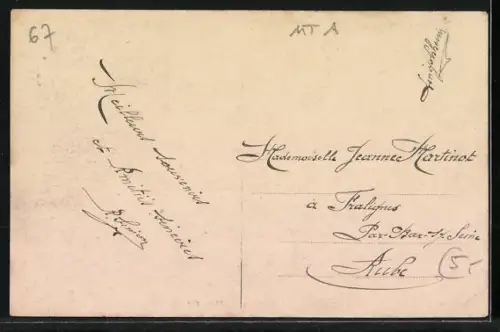 67
MTA
Meilleurs Souvenirs
et Amitiés Sincères
Mademoiselle Jeanne Martinot
à Fralignes
Par-Bar-s/-Seine
Aube
5-